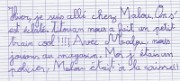 Hier, je suis allé chez Malou. On s'
est éclaté. Usman nous a fait un petit
train cool !!!! Avec Malou, nous
jouions au magasin. Moi je étais un
policier. Malou était à la caisse !!